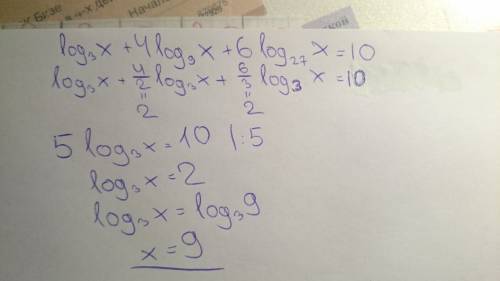 к Бгзе
+х де
Начало
log₃x + 4log₉x + 6log₂₇x = 10
log₃x + 4/2 log₃x + 6/3 log₃x = 10
= =
2 2
5 log₃x = 10 |:5
log₃x = 2
log₃x = log₃9
x = 9